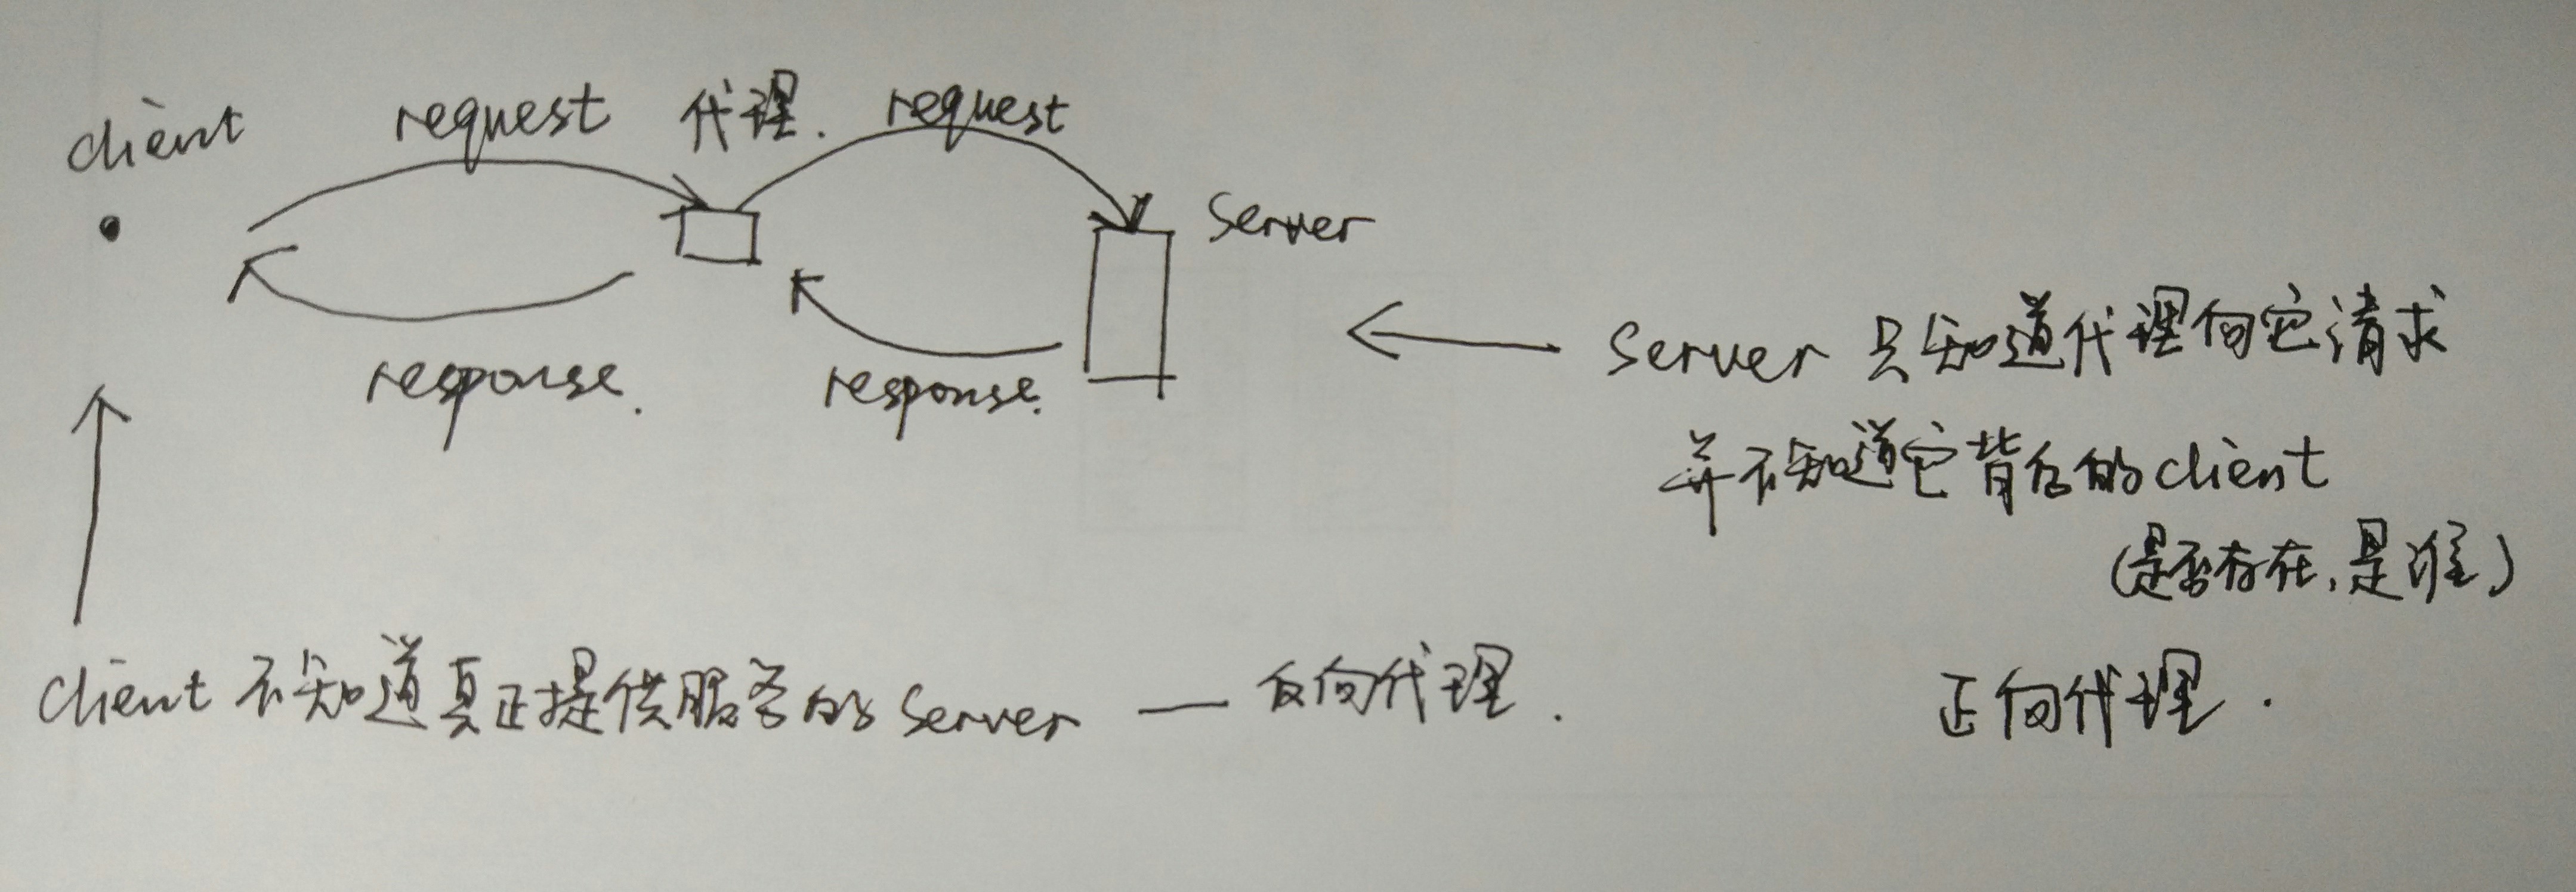 client request 代理. request
Server
response. response.
Server 只知道代理向它请求
并不知道它背后的client
(是否存在,是谁)
client 不知道真正提供服务的 Server — 反向代理.
正向代理.